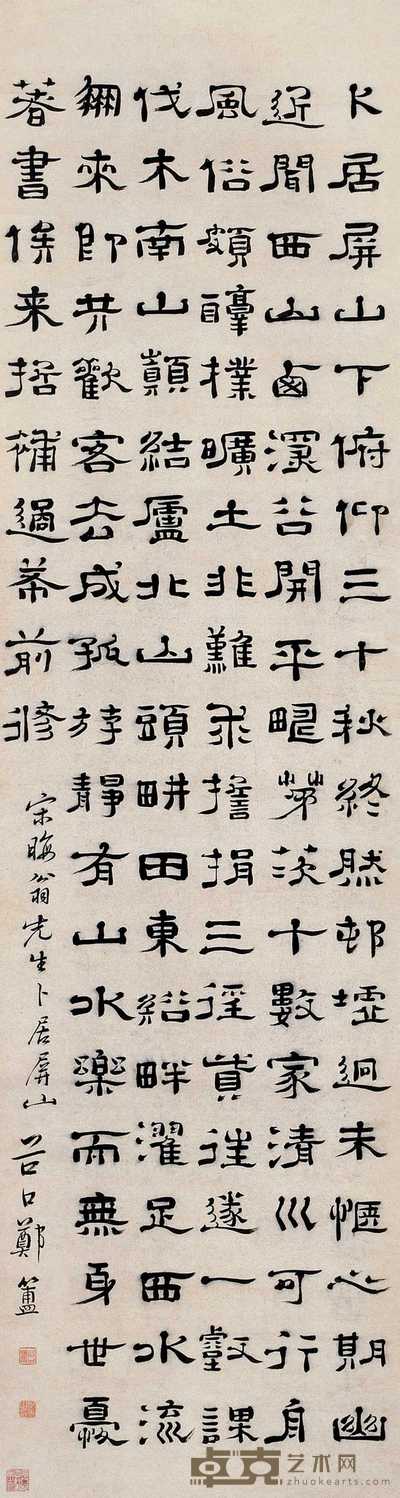 卜居屏山下俯仰三十秋終然邨墟迥未愜心期幽
近聞西山鹵深谷開平疇茅茨十數家清川可行舟
風俗頗醇樸曠土非難求擔捐三徑貲往遂一壑謀
伐木南山顛結廬北山頭畊田東谿畔濯足西水流
來即共歡客去成孤斿靜有山水樂而無身世憂
著書俟来哲補過希前修
宋晦翁先生卜居屏山 谷口鄭簠
卓克艺术网
zhuokearts.com